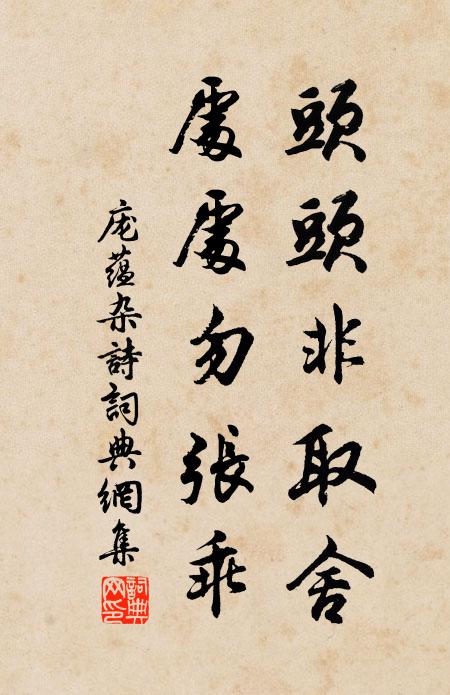 頭頭非取舍
處處勿張乖
庞蕴杂詩詞典網集
詞典網印